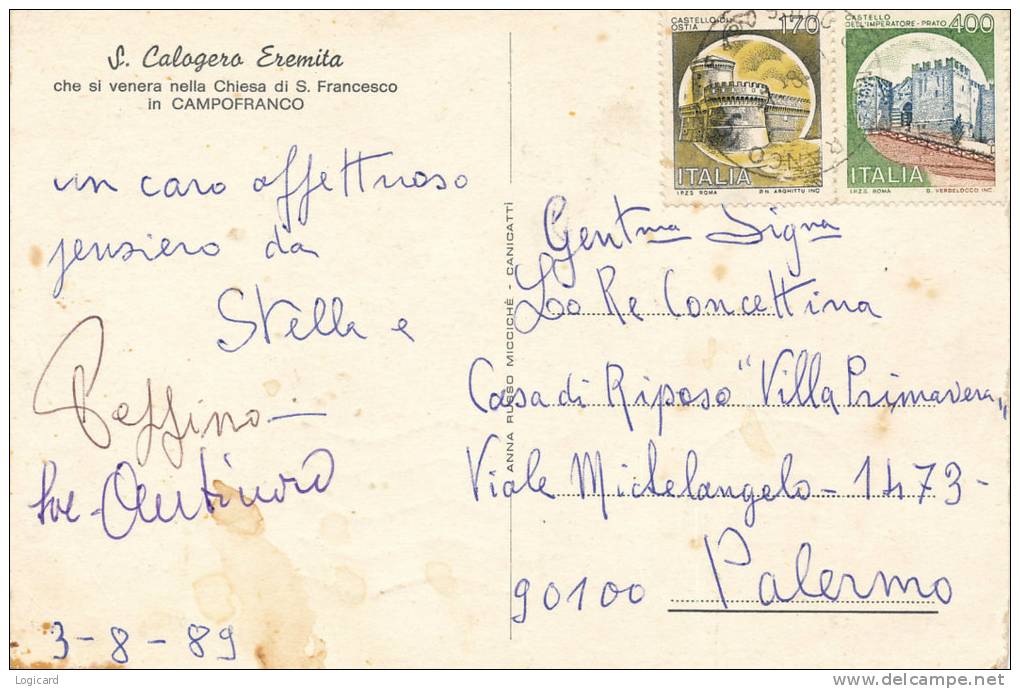 S. Calogero Eremita
che si venera nella Chiesa di S. Francesco
in CAMPOFRANCO
un caro affettuoso
pensiero da
Stella e
Peppino
Antinoro
3-8-89
ANNA RUSSO MICCICHÈ - CANICATTÌ
CASTELLO DI
OSTIA
170
ITALIA
I.P.Z.S. ROMA P.N. ARGHITTU INC.
CASTELLO
DELL'IMPERATORE-PRATO
400
ITALIA
I.P.Z.S. ROMA S. VERDELOCCO INC.
Gent.ma Sig.na
Lo Re Concettina
Casa di Riposo "Villa Primavera"
Viale Michelangelo - 1473 -
90100 Palermo
Logicard
delcampe.net